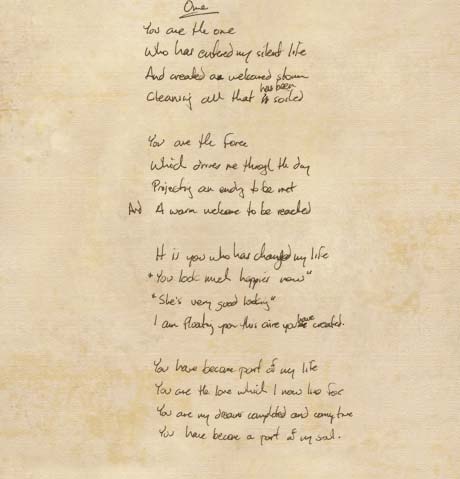 One
You are the one
Who has entered my silent life
And created a welcomed storm
Cleansing all that has been soiled

You are the Force
Which drives me through the day
Projecting an ending to be met
And A warm welcome to be reached

It is you who has changed my life
"You look much happier now"
"She's very good looking"
I am floating upon this you have created.

You have become part of my life
You are the love which I now live for
You are my dreams completed and coming true
You have become a part of my soul.